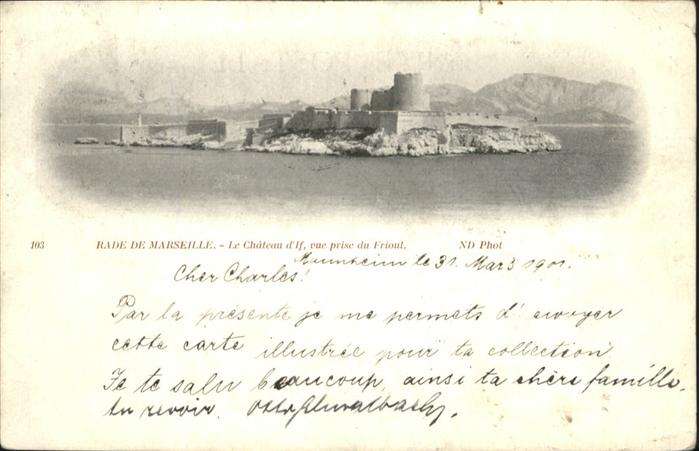 103 RADE DE MARSEILLE. - Le Château d'If, vue prise du Frioul. ND Phot
le 31. Mars 1901.
Cher Charles!
Par la présente je me permets d'envoyer
cette carte illustrée pour ta collection
Je te salu beaucoup, ainsi ta chère famille.
Au revoir. Otto